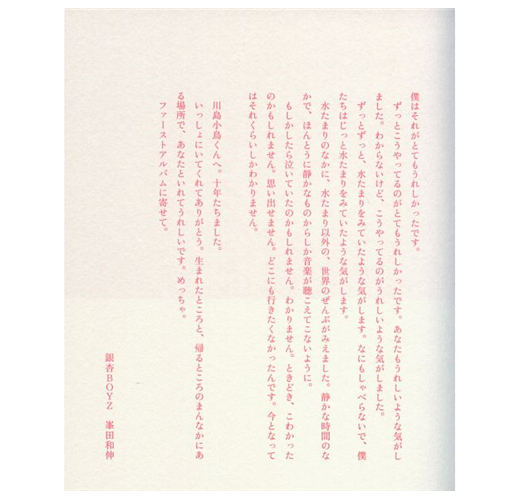 僕はそれがとてもうれしかったです。
ずっとこうやってるのがとてもうれしかったです。あなたもうれしいような気がし
ました。わからないけど、こうやってるのがうれしいような気がしました。
ずっとずっと、水たまりをみていたような気がします。なにもしゃべらないで、僕
たちはじっと水たまりをみていたような気がします。
水たまりのなかに、水たまり以外の、世界のぜんぶがみえました。静かな時間のな
かで、ほんとうに静かなものからしか音楽が聴こえてこないように。
もしかしたら泣いていたのかもしれません。わかりません。ときどき、こわかった
のかもしれません。思い出せません。どこにも行きたくなかったんです。今となって
はそれくらいしかわかりません。
川島小鳥くんへ。十年たちました。
いっしょにいてくれてありがとう。生まれたところと、帰るところのまんなかにあ
る場所で、あなたといれてうれしいです。めっちゃ。
ファーストアルバムに寄せて。
銀杏BOYZ 峯田和伸